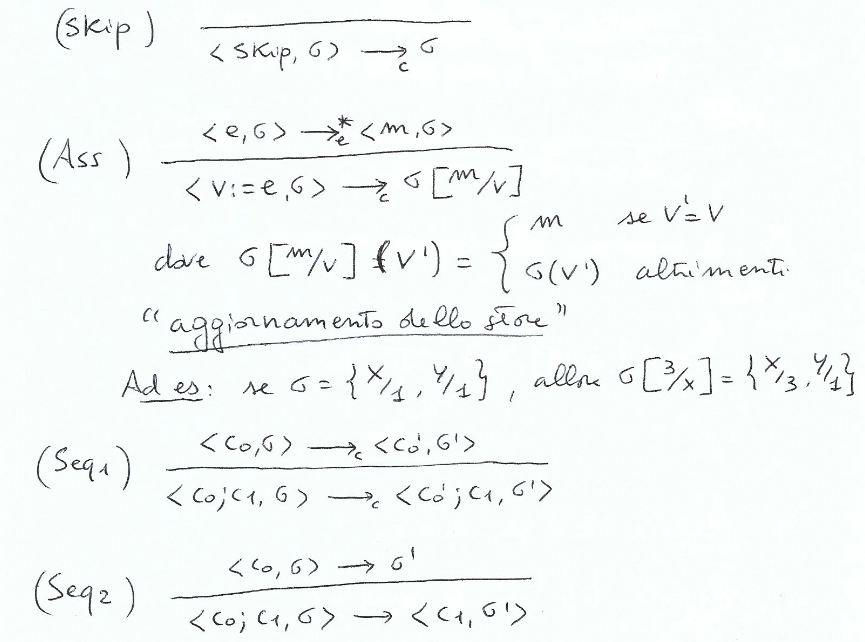 (Skip) ──────────
< Skip, σ > ⟶c σ
<e,σ> ⟶e* <m,σ>
(Ass) ──────────
< v:=e,σ> ⟶c σ[m/v]
dove σ[m/v](v') = { m se v'=v
σ(v') altrimenti.
“aggiornamento dello store”
Ad es: se σ = {x/1, y/1}, allora σ[3/x] = {x/3, y/1}
<c0,σ> ⟶c <c0',σ'>
(Seq1) ──────────
<c0;c1, σ> ⟶c <c0';c1,σ'>
<c0,σ> ⟶ σ'
(Seq2) ──────────
<c0;c1,σ> ⟶ <c1,σ'>